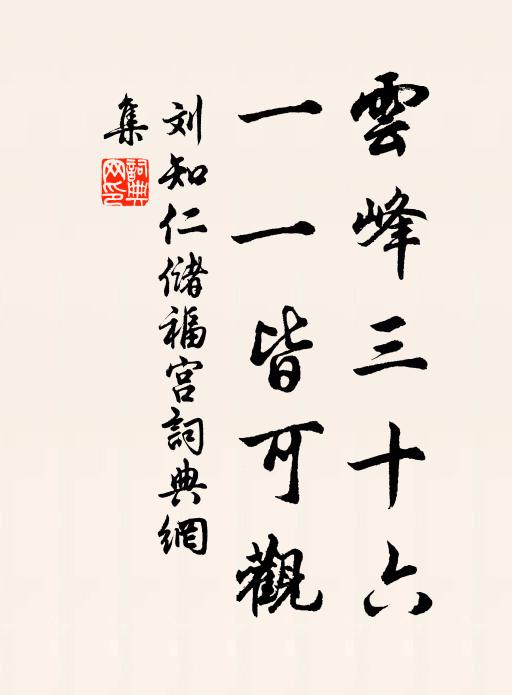 雲峰三十六
一一皆可觀
刘知仁儲福宮詞典網
集
詞典網印